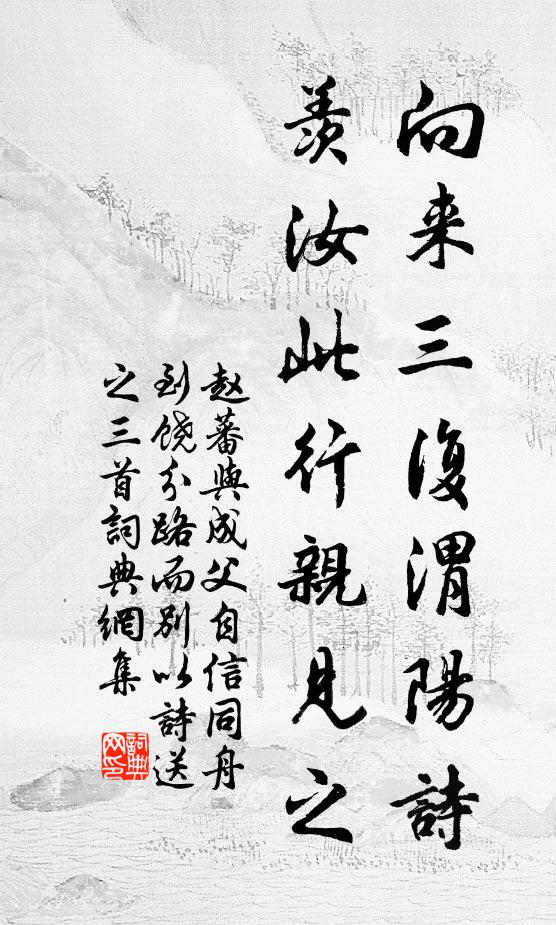 向来三復渭陽詩
羨汝此行親見之
赵蕃與成父自信同舟
到饒分路而别以詩送
之三首詞典網集
詞典網印